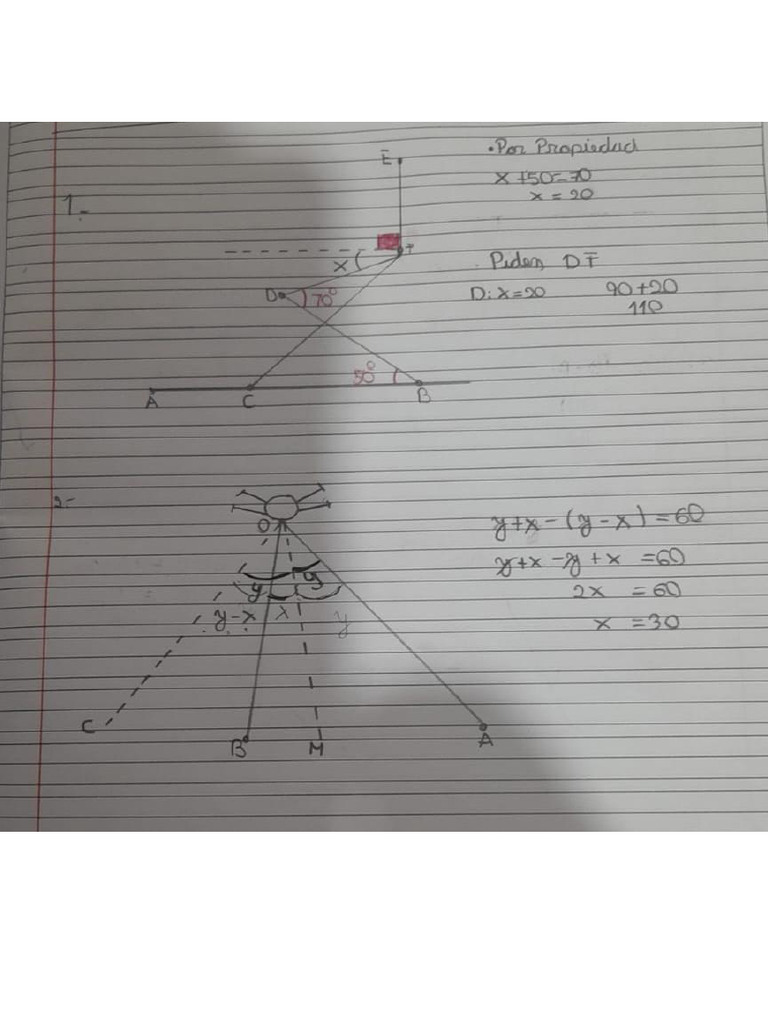 1.-
• Por Propiedad
x + 50 = 70
x = 20
E
T
x
D
70°
Piden DT
D: x = 20
90 + 20
110
50°
A
C
B
2-
O
y
y
y - x
x
y
C
B
M
A
y + x - (y - x) = 60
y + x - y + x = 60
2x = 60
x = 30